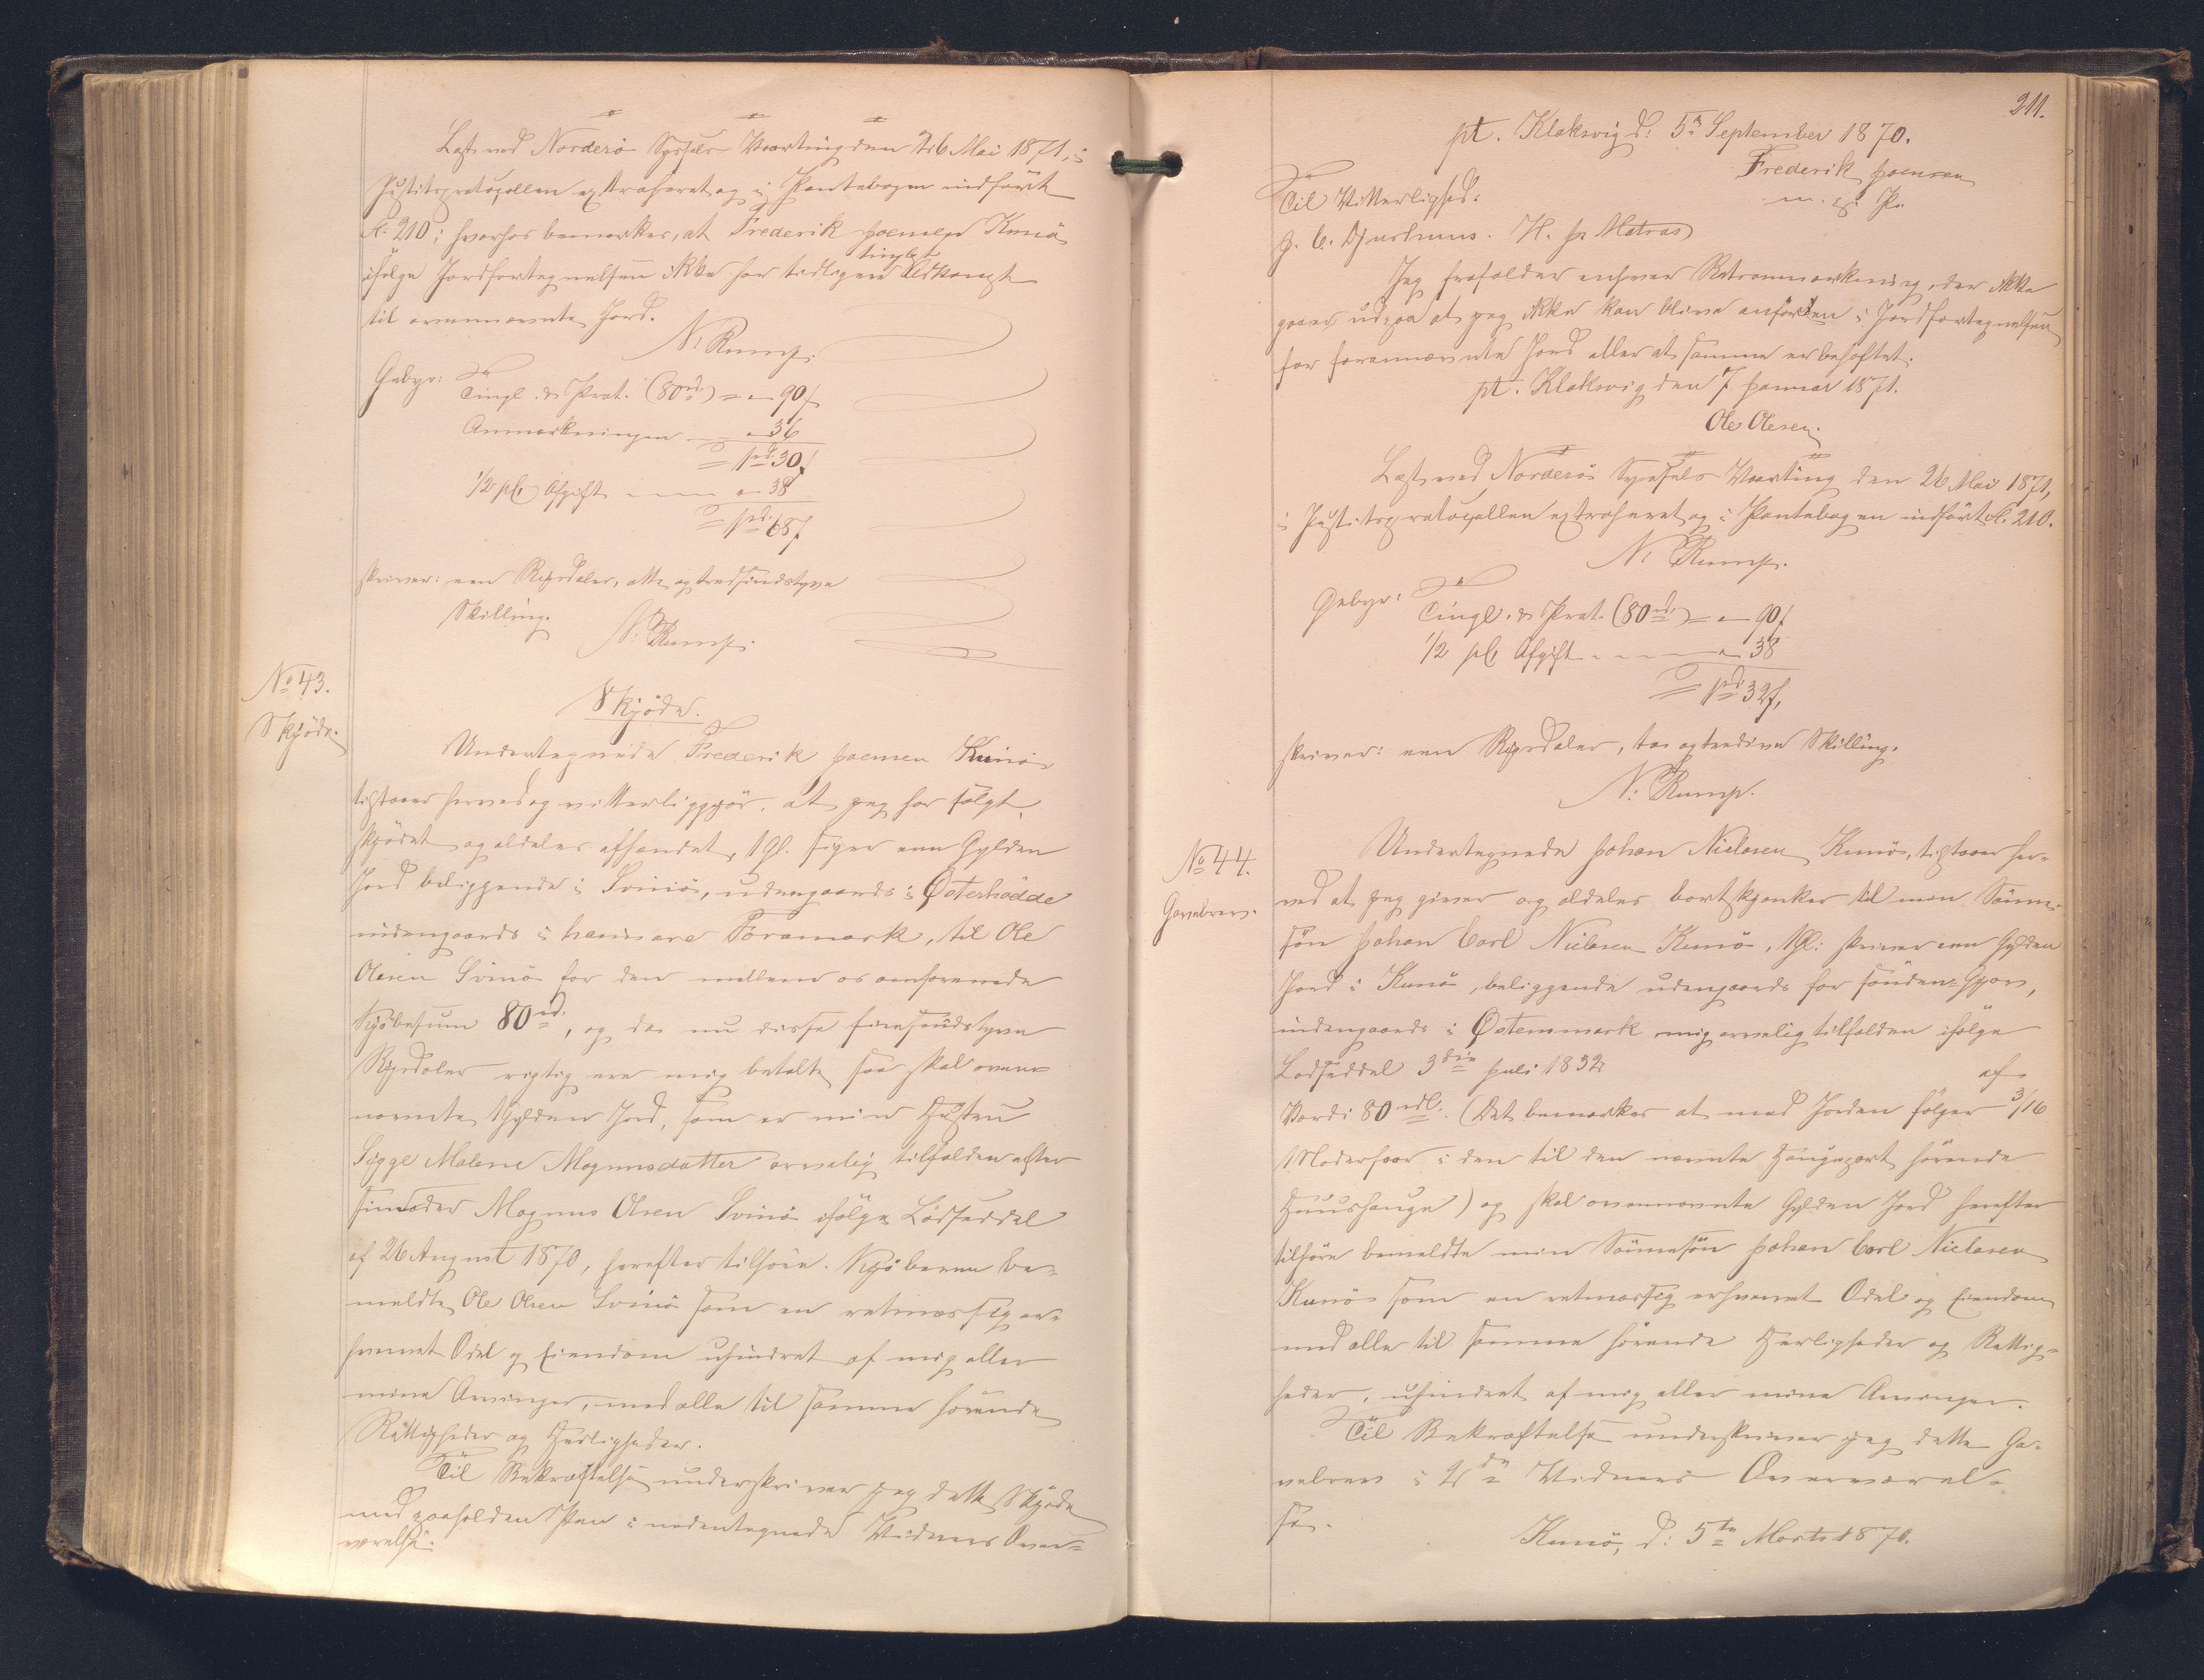 Læst ved Norderö Syssels Vaarting den 26 Mai 1871, i
Justitsprotocollen extraheret og i Pantebogen indfört
fl. 210; hvorhos bemærkes, at Frederik Joensen Kunö
ifölge Jordfortegnelsen ikke har tidligere tinglæst Adkomst
til ovennævnte Jord.
N. Rump.
Gebyr: Tingl. & Prot. (80rd.) = " 90 ſ
Anmærkningen " 36
= 1rd. 30 ſ
1/2 pCt Afgift " 38
= 1rd. 68 ſ
skriver: een Rigsdaler, otte og tredsindstyve
Skilling.
N. Rump.
No 43.
Skjöde.
Skjöde.
Undertegnede Frederik Joensen Kunö
tilstaaer herved og vitterliggjör, at jeg har solgt,
skjödet og aldeles afhændet, 1 Gl. siger een Gylden
Jord beliggende i Svinö, udengaards i Østerhødde
indengaards i hannare Toramark, til Ole
Olesen Svinö for den mellem os omforenede
Kjöbesum 80rd., og da nu disse firesindstyve
Rigsdaler rigtig ere mig betalte, saa skal oven-
nævnte 1 Gylden Jord, som er min Hustru
Sigge Malene Magnusdatter arvelig tilfalden efter
sin Fader Magnus Olsen Svinö ifölge Lodseddel
af 26 August 1870, herefter tilhöre Kjöberen be-
meldte Ole Olsen Svinö som en retmæssig er-
hvervet Odel og Eiendom uhindret af mig eller
mine Arvinger, med alle til samme hörende
Rettigheder og Herligheder.
Til Bekræftelse underskriver jeg dette Skjöde
med paaholden Pen i nedentegnede Vidners Over-
værelse.
211.
pt. Klaksvig d: 5te September 1870.
Frederik Joensen
m. f. P.
Til Vitterlighed:
J. C. Djurhuus. H. J. Matras
Jeg frafalder enhver Retsanmærkning, der ikke
gaaer ud paa at jeg ikke kan blive anfört en i Jordfortegnelsen
for forannævnte Jord eller at samme er behæftet.
pt. Klaksvig den 7 Januar 1871.
Ole Olesen.
Læst ved Norderö Syssels Vaarting den 26 Mai 1871,
i Justitsprotocollen extraheret og i Pantebogen indfört fl. 210.
N. Rump.
Gebyr: Tingl. & Prot. (80rd.) = " 90 ſ
1/2 pCt Afgift " 38
= 1rd. 32 ſ,
skriver: een Rigsdaler, to og tredive Skilling.
N. Rump.
No 44.
Gavebrev.
Undertegnede Johan Nielsen Kunö, tilstaaer her-
ved at jeg giver og aldeles bortskjænker til min Sönne-
sön Johan Carl Nielsen Kunö, 1 Gl: skriver een Gylden
Jord i Kunö, beliggende udengaards for sönden Gjov,
indengaards i Østemmark mig arvelig tilfalden ifölge
Lodseddel 3die Juli 1832
Værdi 80rdl. (Det bemærkes at med Jorden fölger 3/16 af
1 Moderfaar i den til den nævnte Haugepart hörende
Huushauge) og skal ovennævnte Gylden Jord herefter
tilhöre bemeldte min Sönnesön Johan Carl Nielsen
Kunö som en retmæssig erhvervet Odel og Eiendom
med alle til samme hörende Herligheder og Rettig-
heder, uhindret af mig eller mine Arvinger.
Til Bekræftelse underskriver jeg dette Ga-
vebrev i 2de Vidners Overværel-
se.
Kunö, d: 5te Marts 1870.